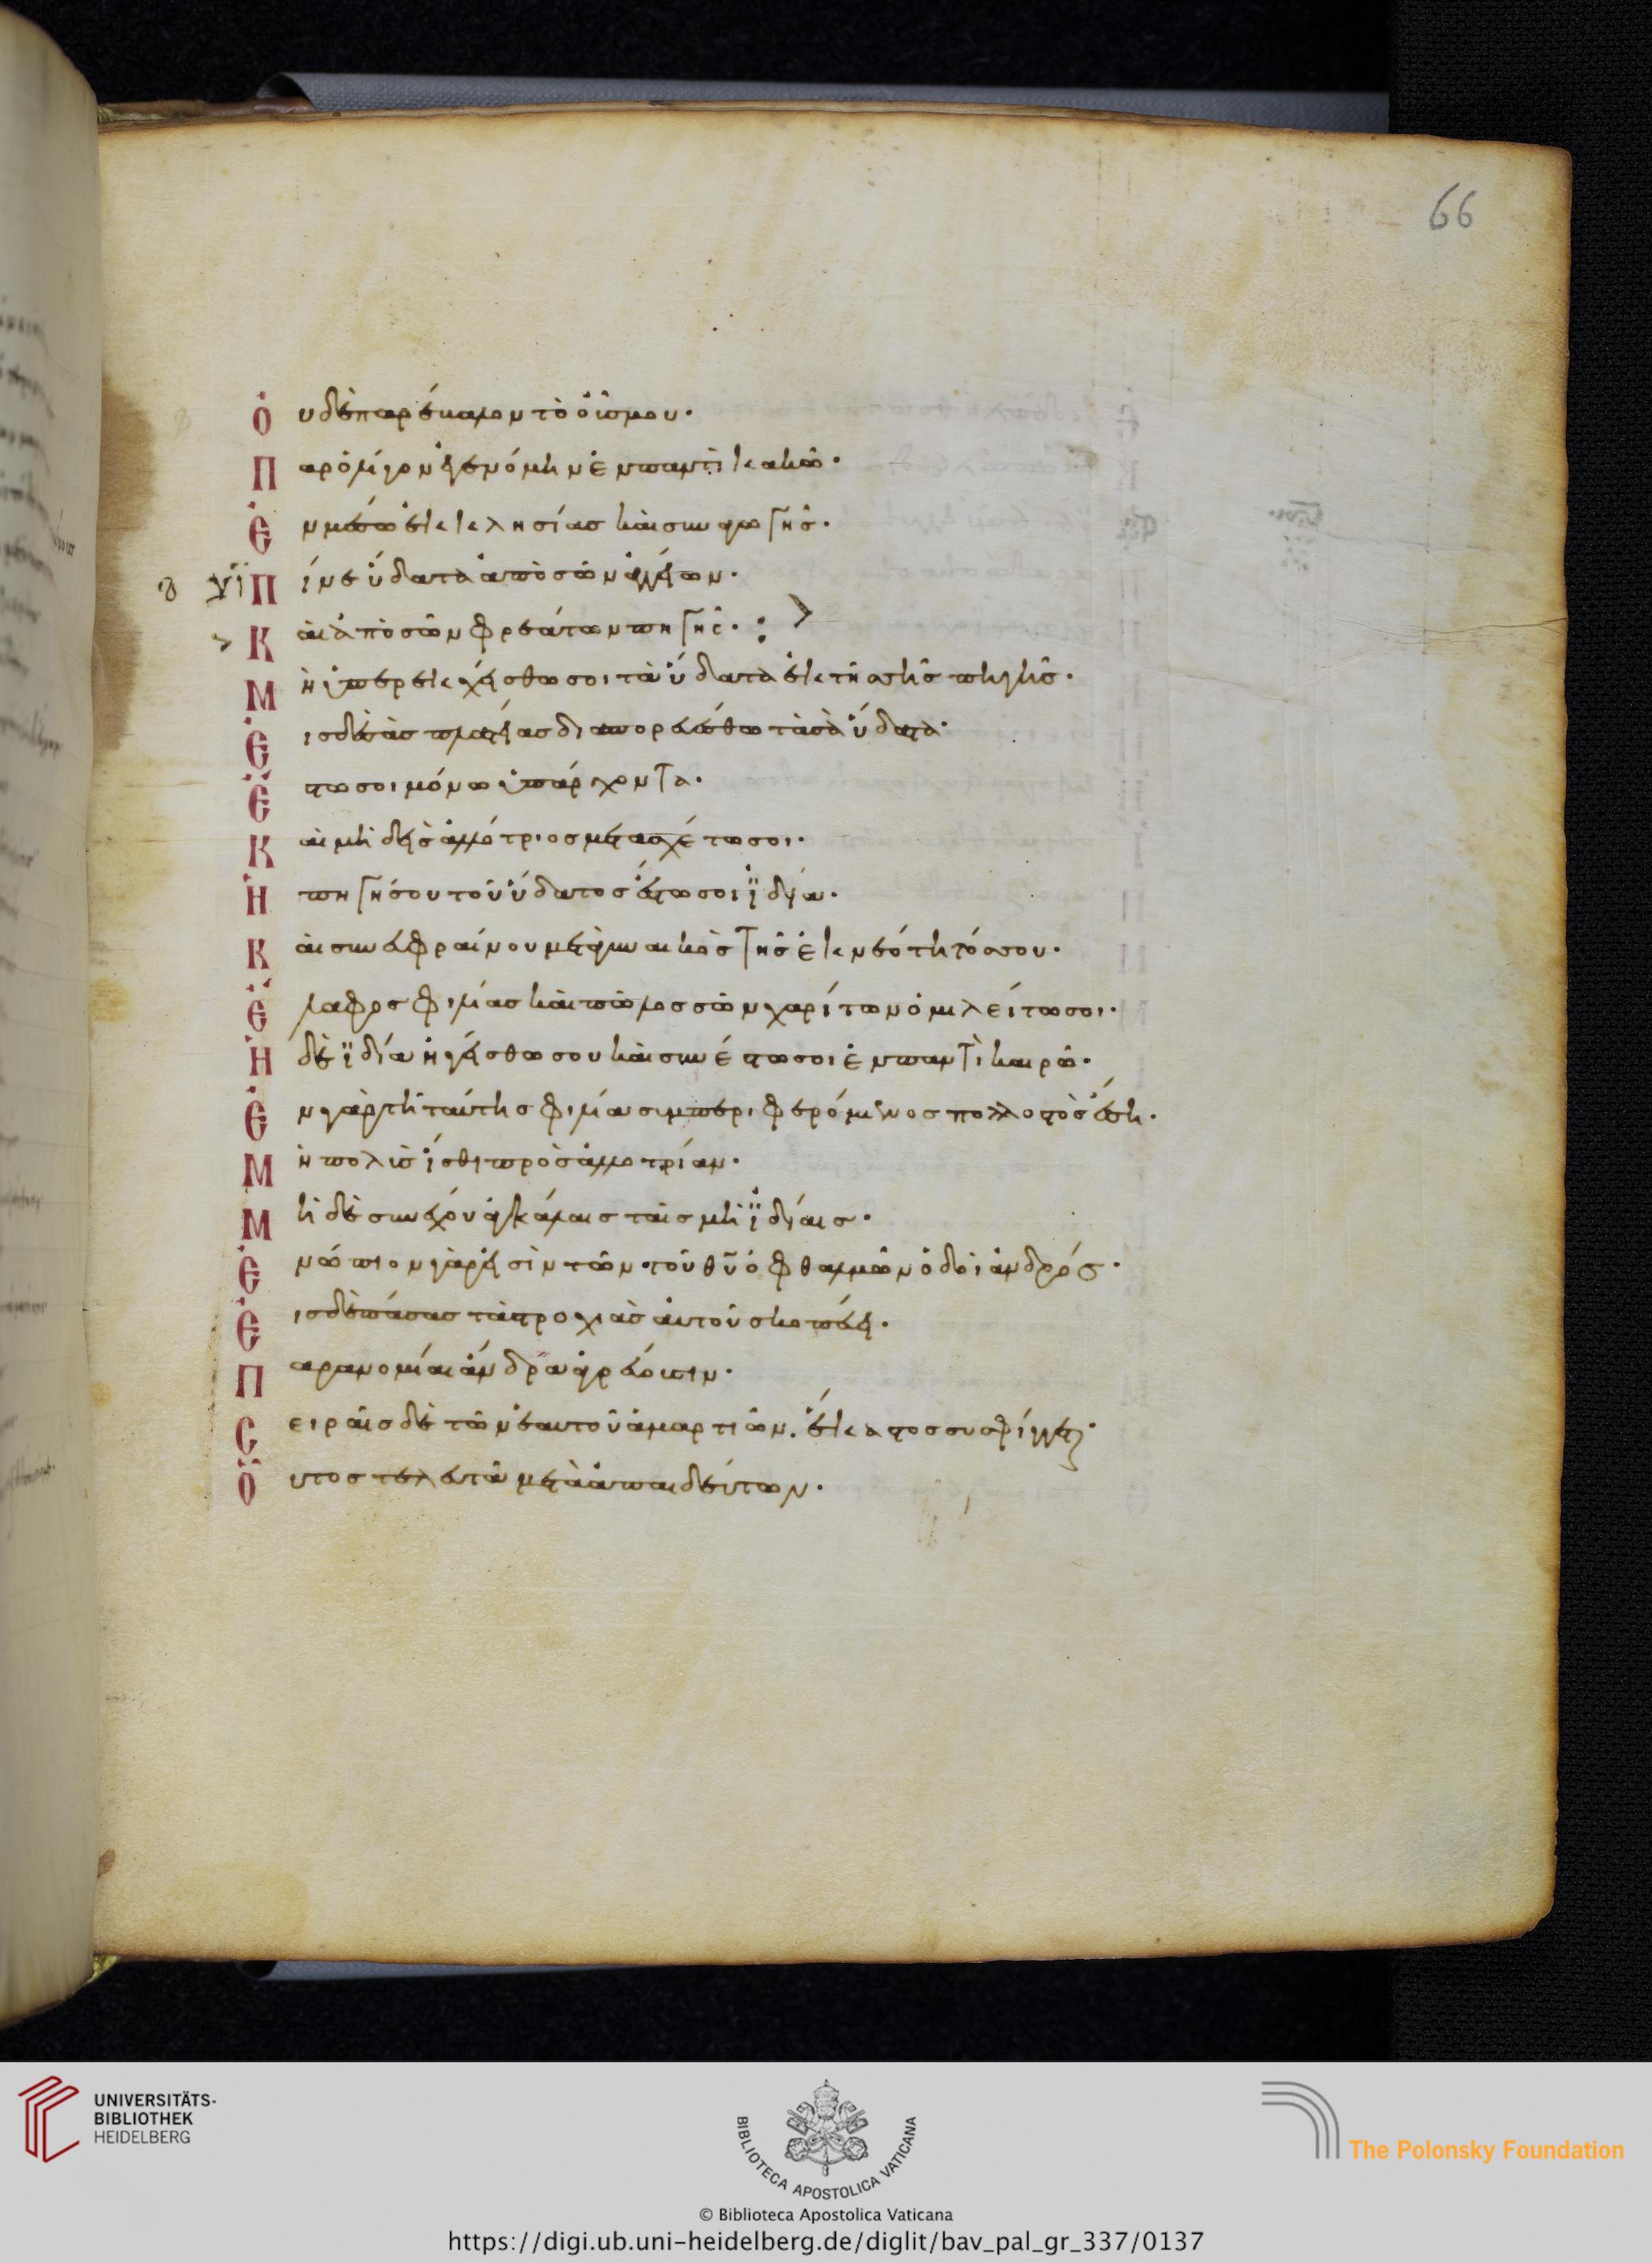 66
Οὐδὲ παρέβαλον τὸ οὖς μου·
Παρ' ὀλίγον ἐγενόμην ἐν παντὶ κακῶ·
Ἐν μέσω ἐκκλησίας καὶ συναγωγῆς·
Πίνε ὕδατα ἀπὸ σῶν ἀγγείων·
Καὶ ἀπὸ σῶν φρεάτων πηγῆς·
Μὴ ὑπερεκχείσθω σοι τὰ ὕδατα ἐκ τῆς σῆς πηγῆς·
Εἰς δὲ σὰς πλατείας διαπορευέσθω τὰ σὰ ὕδατα·
Ἔστω σοι μόνω ὑπάρχοντα·
Καὶ μηδεὶς ἀλλότριος μετασχέτω σοι·
Ἡ πηγή σου τοῦ ὕδατος ἔστω σοι ἰδία·
Καὶ συνευφραίνου μετὰ γυναικὸς τῆς ἐκ νεότητός σου·
Ἔλαφος φιλίας καὶ πῶλος σῶν χαρίτων ὁμιλείτω σοι·
Ἡ δὲ ἰδία ἡγείσθω σου καὶ συνέστω σοι ἐν παντὶ καιρῶ·
Ἐν γὰρ τῆ ταύτης φιλία συμπεριφερόμενος πολλοστὸς ἔση·
Μὴ πολὺς ἴσθι πρὸς ἀλλοτρίαν·
Μὴ δὲ συνέχου ἀγκάλαις ταῖς μὴ ἰδίαις·
Ἐνώπιον γὰρ εἰσὶν τῶν τοῦ θῦ ὀφθαλμῶν ὁδοὶ ἀνδρός·
Εἰς δὲ πάσας τὰς τροχιὰς αὐτοῦ σκοπεύει·
Παρανομίαι ἄνδρα ἀγρεύουσιν·
Σειραῖς δὲ τῶν ἑαυτοῦ ἁμαρτιῶν. ἕκαστος συσφίγγεται·
Οὗτος τελευτᾶ μετὰ ἀπαιδεύτων·
UNIVERSITÄTS-
BIBLIOTHEK
HEIDELBERG
BIBLIOTECA APOSTOLICA VATICANA
The Polonsky Foundation
© Biblioteca Apostolica Vaticana
https://digi.ub.uni-heidelberg.de/diglit/bav_pal_gr_337/0137